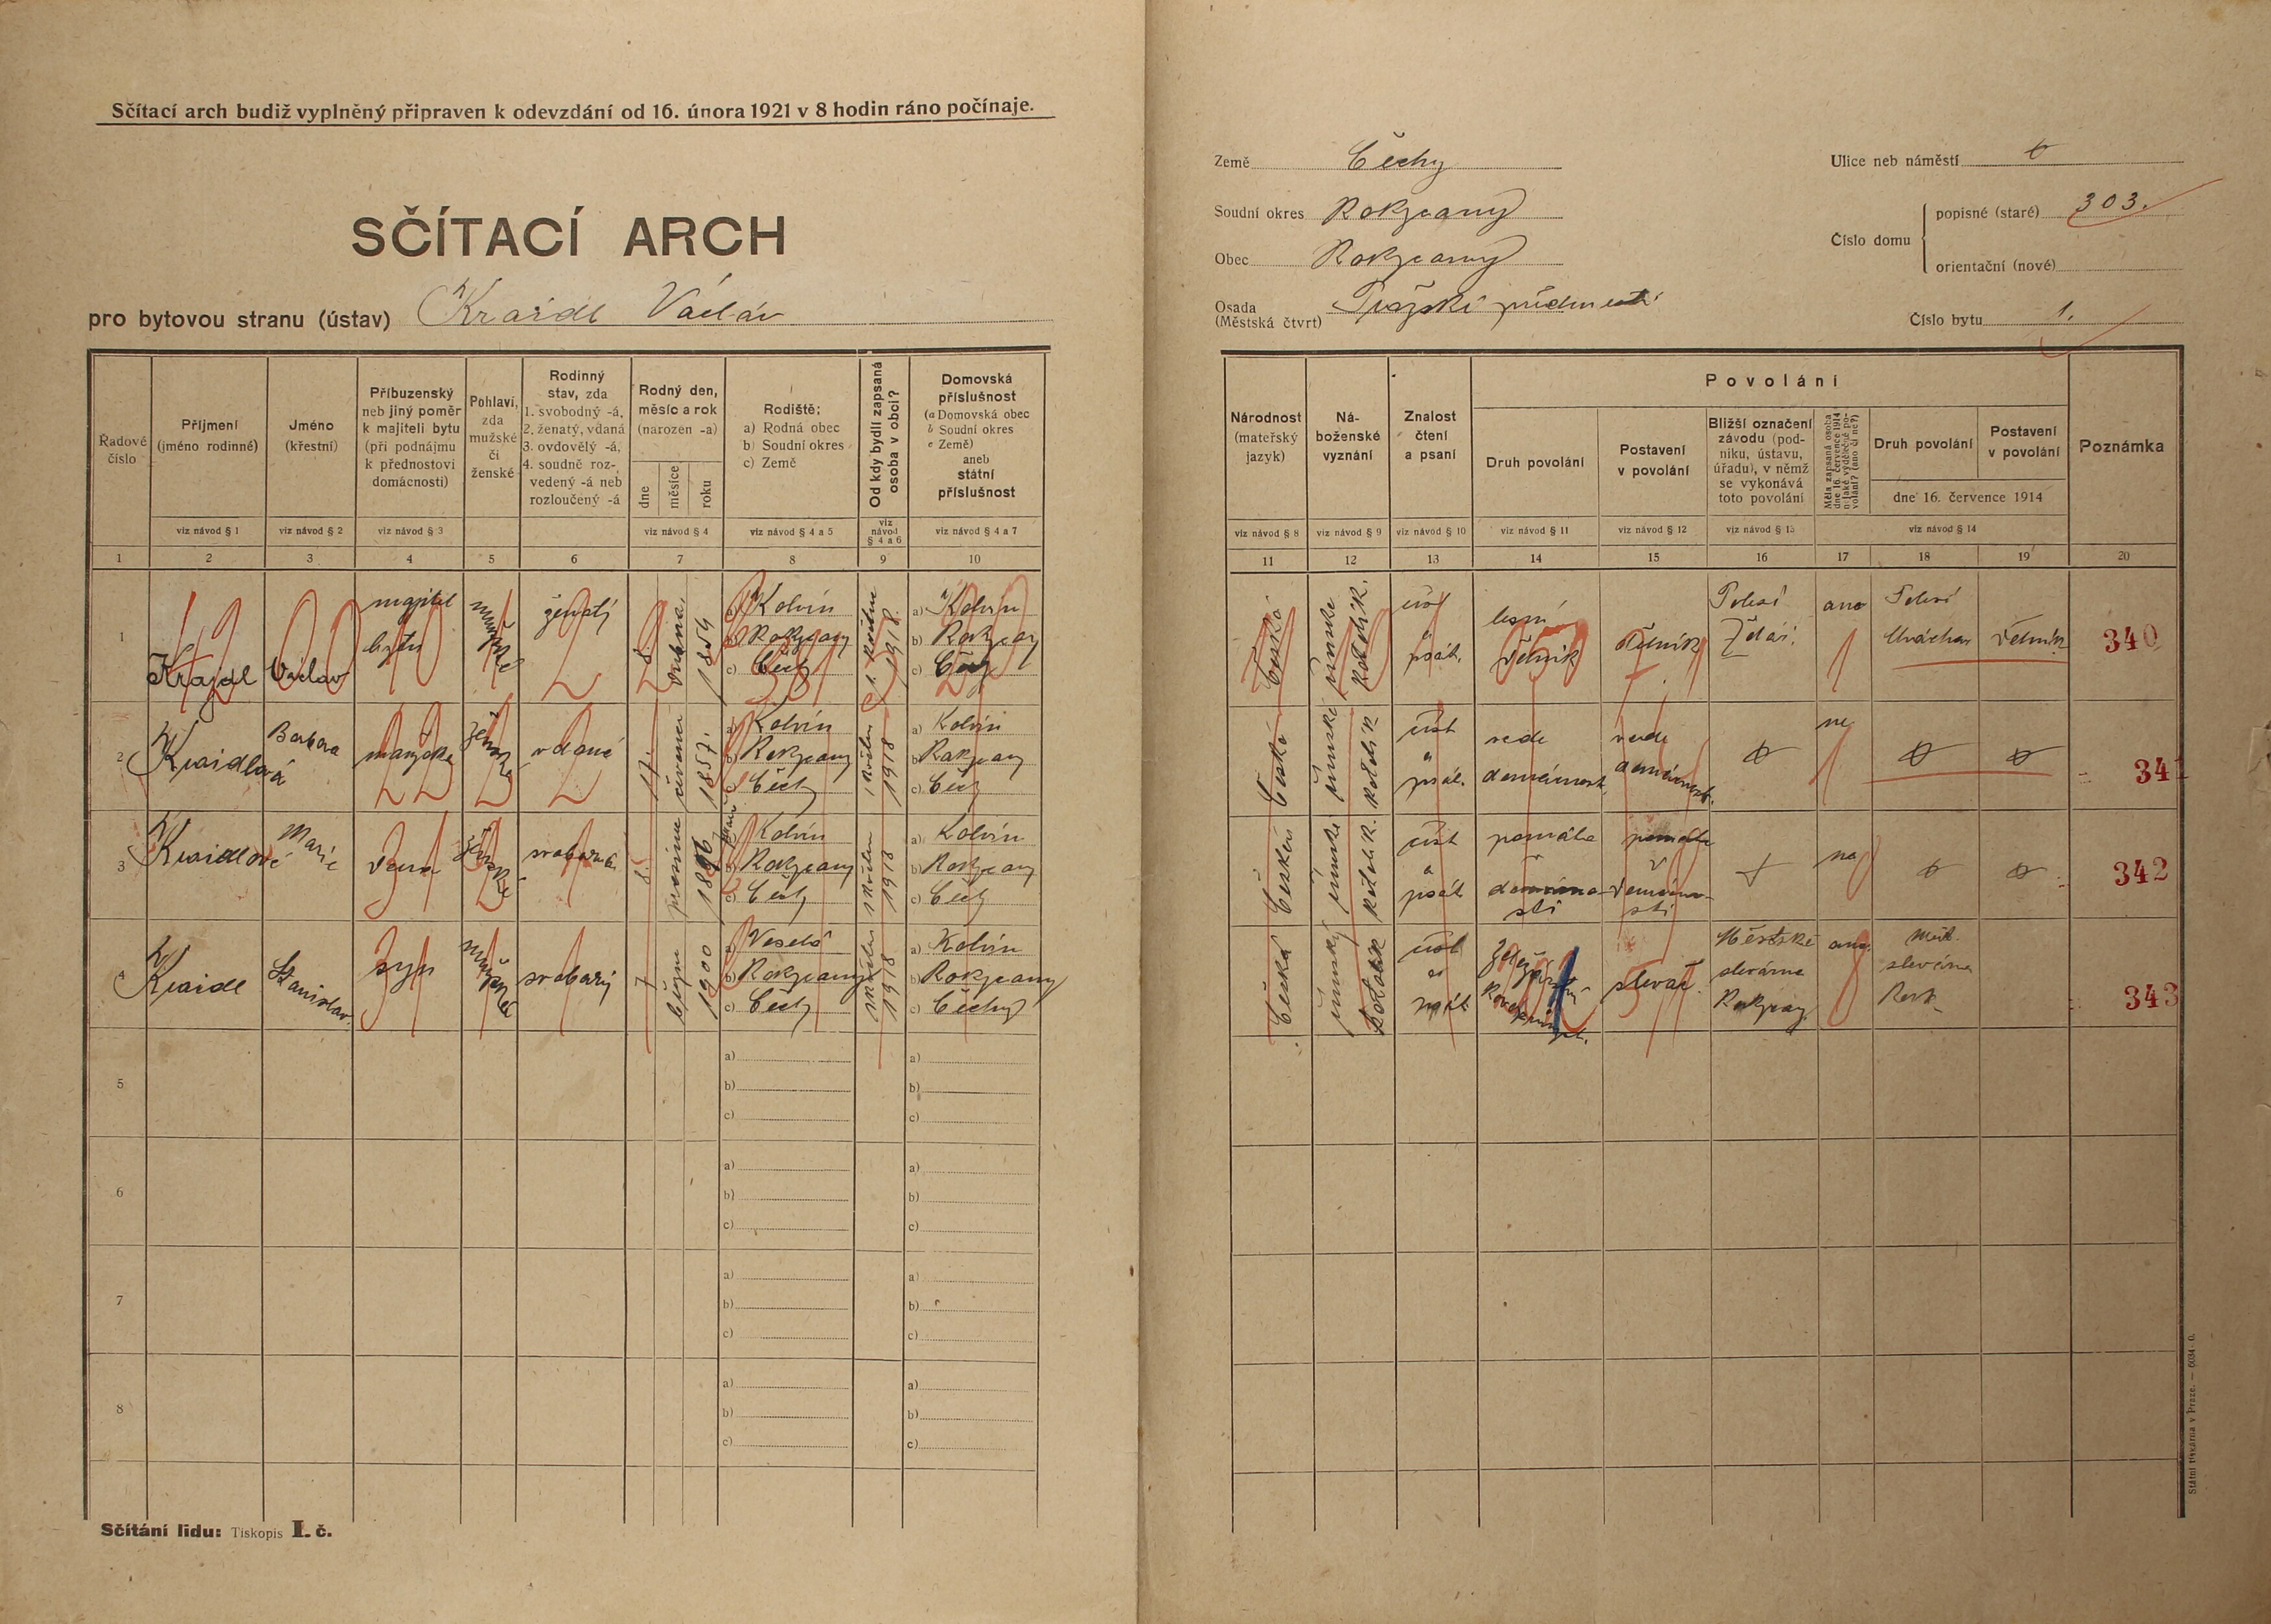 Sčítací arch budiž vyplněný připraven k odevzdání od 16. února 1921 v 8 hodin ráno počínaje.
SČÍTACÍ ARCH
pro bytovou stranu (ústav) Kraidl Václav
Země Čechy
Soudní okres Rokycany
Obec Rokycany
Osada
(Městská čtvrt) Pražské předměstí
Ulice neb náměstí
Číslo domu
popisné (staré) 303.
orientační (nové)
Číslo bytu 1.
Řadové
číslo
Příjmení
(jméno rodinné)
viz návod § 1
Jméno
(křestní)
viz návod § 2
Příbuzenský
neb jiný poměr
k majiteli bytu
(při podnájmu
k přednostovi
domácnosti)
viz návod § 3
Pohlaví,
zda
mužské
či
ženské
Rodinný
stav, zda
1. svobodný -á,
2. ženatý, vdaná
3. ovdovělý -á,
4. soudně roz-
vedený -á neb
rozloučený -á
Rodný den,
měsíc a rok
(narozen -a)
dne
měsíce
roku
viz návod § 4
Rodiště:
a) Rodná obec
b) Soudní okres
c) Země
viz návod § 4 a 5
Od kdy bydlí zapsaná
osoba v obci?
viz
návod
§ 4 a 6
Domovská
příslušnost
(a Domovská obec
b Soudní okres
c Země)
aneb
státní
příslušnost
viz návod § 4 a 7
Národnost
(mateřský
jazyk)
viz návod § 8
Ná-
boženské
vyznání
viz návod § 9
Znalost
čtení
a psaní
viz návod § 10
Povolání
Druh povolání
viz návod § 11
Postavení
v povolání
viz návod § 12
Bližší označení
závodu (pod-
niku, ústavu,
úřadu), v němž
se vykonává
toto povolání
viz návod § 13
Měla zapsaná osoba
dne 16. července 1914
nějaké výdělečné po-
volání? (ano či ne?)
Druh povolání
Postavení
v povolání
dne 16. července 1914
viz návod § 14
Poznámka
1 2 3 4 5 6 7 8 9 10
11 12 13 14 15 16 17 18 19 20
1
Krajdl Václav
majitel
bytu
mužské
ženatý
8.
dubna
1854
a) Kolvín
b) Rokycany
c) Čechy
1. května
1918.
a) Kolvín
b) Rokycany
c) Čechy
Česká
římsko
katolík.
čísti
psát.
lesní
dělník
dělník
Polesí
Ždár.
ano
Polesí
dělník
340
2
Kraidlová
Barbora
manželka
ženské
vdaná
17.
červenec
1857.
a) Kolvín
b) Rokycany
c) Čechy
1 květen
1918
a) Kolvín
b) Rokycany
c) Čechy
Česká
římské
katolík
číst
a
psát.
vede
domácnost
vede
domácnost.
ne
341
3
Kraidlová
Marie
dcera
ženské
svobodná
8.
prosince
1896
a) Kolvín
b) Rokycany
c) Čechy
1 květen
1918
a) Kolvín
b) Rokycany
c) Čechy
Česká
římské
katolík.
číst
a
psát
pomáhá
v
domácno-
sti
pomáhá
v
domácno-
sti
ne
342
4
Kraidl
Stanislav.
syn
mužské
svobodný
7
1900
a) Veselá
b) Rokycany
c) Čechy
1 květen
1918
a) Kolvín
b) Rokycany
c) Čechy
Česká
římský
katolík
číst
a
psát
slevač.
Městské
slevárna
Rokycany.
ano.
Měst.
slevárna
Rok.
343
5
a)
b)
c)
a)
b)
c)
6
a)
b)
c)
a)
b)
c)
7
a)
b)
c)
a)
b)
c)
8
a)
b)
c)
a)
b)
c)
Sčítání lidu: Tiskopis I. č.
Státní tiskárna v Praze. — 6034-0.